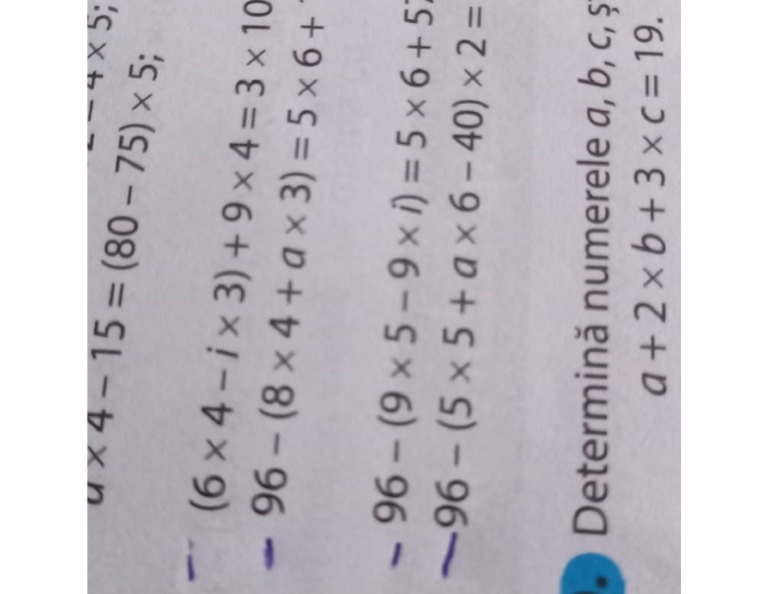 × 5;
a × 4 – 15 = (80 – 75) × 5;
(6 × 4 – i × 3) + 9 × 4 = 3 × 10
96 – (8 × 4 + a × 3) = 5 × 6 +
96 – (9 × 5 – 9 × i) = 5 × 6 + 5
96 – (5 × 5 + a × 6 – 40) × 2 =
Determină numerele a, b, c, ș
a + 2 × b + 3 × c = 19.